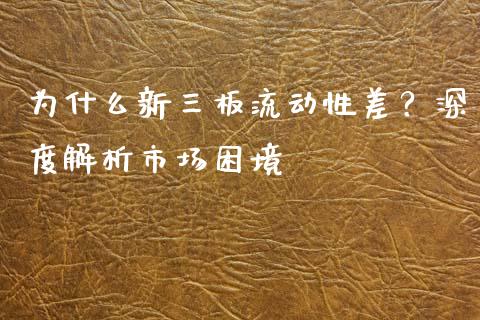 为什么新三板流动性差？深
度解析市场困境